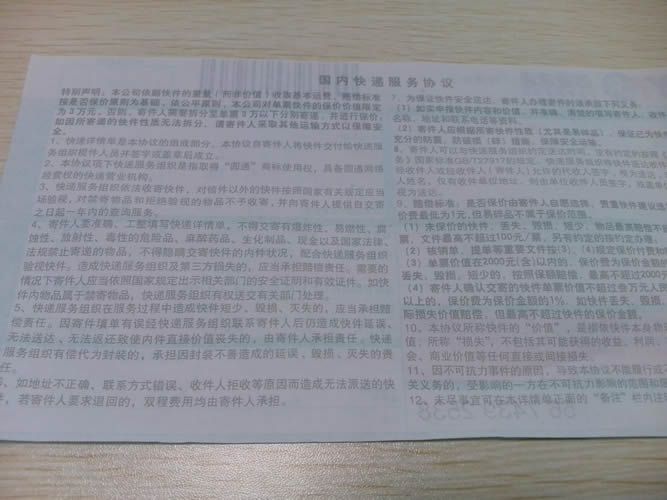 国内快递服务协议
特别声明：本公司依照快件的重量（而非价值）收取基本运费、赔偿标准
按是否保价原则为基础，依公平原则，本公司对单票快件的保价价值限定
为3万元，否则，寄件人需要拆分至单票3万以下分别寄递，并进行保价，
如因所寄递的快件性质无法拆分，请寄件人采取其他运输方式以保障安
全。
1、快递详情单是本协议的组成部分。本协议自寄件人将快件交付给快递服
务组织揽件人员并签字或盖章后成立。
2、本协议项下快递服务组织是指取得“圆通”商标使用权，具备圆通网络
经营权的快递营业机构。
3、快递服务组织依法收寄快件，对信件以外的快件按照国家有关规定应当
场验视，对禁寄物品和拒绝验视的物品不予收寄，并向寄件人提供自交寄
之日起一年内的查询服务。
4、寄件人要准确、工整填写快递详情单，不得交寄有爆炸性、易燃性、腐
蚀性、放射性、毒性的危险品、麻醉药品、生化制品、现金以及国家法律、
法规禁止寄递的物品，不得隐瞒交寄快件的内件状况，配合快递服务组织
验视快件。造成快递服务组织及第三方损失的，应当承担赔偿责任。需要的
情况下寄件人应当依照国家规定出示相关部门的安全证明和有效证件。如快
件内物品属于禁寄物品，快递服务组织有权送交有关部门处理。
5、快递服务组织在服务过程中造成快件短少、毁损、灭失的，应当承担赔
偿责任。因寄件填单有误经快递服务组织联系寄件人后仍造成快件延误、
无法送达、无法返还致使内件直接价值丧失的，由寄件人承担责任。快递
服务组织有偿代为封装的，承担因封装不善造成的延误、毁损、灭失的责
任。
、如地址不正确、联系方式错误、收件人拒收等原因而造成无法派送的快
件，若寄件人要求退回的，双程费用均由寄件人承担。
7、为保证快件安全运达，寄件人办理寄件时须承担下列义务：
(1) 如实申报快件内容和价值，并准确、清楚的填写寄件人、收件
名称、地址和联系电话等资料。
(2) 寄件人应根据所寄快件性致（尤其是易碎品），保证已为快件
充分的防震、防破损（碎）措施，保障安全运输。
8、寄件人可以与快递服务组织约定送达时间，没有约定的按照《
务》国家标准GB/T27917的指定。快递服务组织将快件妥投收件
经收件人或经收件人（寄件人）允许的代收人签字，视为送达；
人姓名，仅有收件单位地址，则由单位收件人员签字，或盖单
视为送达。
9、赔偿标准：是否保价由寄件人自愿选择，贵重快件建议选
价费最低为1元，但易碎品不属于保价范围。
(1) 未保价的快件，丢失、毁损、短少，物品最高赔偿不超
票，文件最高不超过100元/票，另有约定的按约定办理。
(2) 核销单、提单等重要文件按9（3）、（4）规定保价付费加
(3) 单票价值在2000元(含)以内的，保价费为保价金额的
丢失、毁损、短少的，按照保额赔偿，最高不超过2000元
(4) 寄件人确认交寄的快件单票价值不超过叁万元人民
以上的，保价费为保价金额的1%，如快件丢失、毁损、
际损失价值赔偿，但最高不超过快件的保价金额。
10、本协议所称快件的“价值”，是指依快件本身
值；所称“损失”，不包括其可能获得的收益、利润、
会、商业价值等任何直接或间接损失。
11、因不可抗力事件的原因，导致本协议不能履行或不
关义务的，受影响的一方在不可抗力影响的范围和
12、未尽事宜可在本详情单正面的“备注”栏内注明